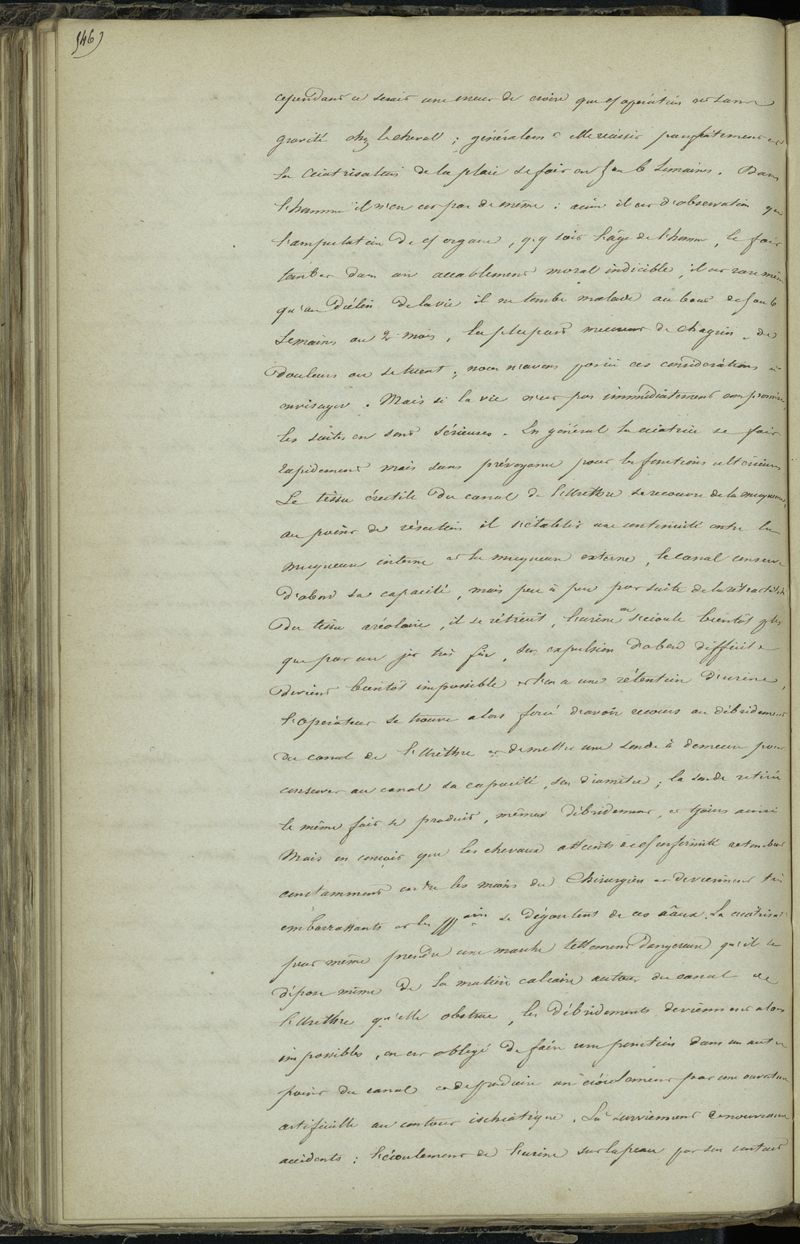 (46)
cependant ce serait une erreur de croire que cette opération est sans
gravité chez le cheval ; généralement elle réussit parfaitement et
la cicatrisation de la plaie se fait en 5 ou 6 semaines. Dans
l'homme il n'en est pas de même : ainsi il est d'observation que
l'amputation de cet organe, qq soit l'âge de l'homme, le fait
tomber dans un accablement moral indicible, il est rare même
qu'au déclin de la vie il ne tombe malade au bout de 5 ou 6
semaines ou 2 mois, la plupart meurent de chagrin, de
douleurs ou se tuent ; nous n'avons pas ici ces considérations à
envisager. Mais si la vie n'est pas immédiatement compromise,
les suites en sont sérieuses. En général la cicatrice se fait
rapidement mais sans prévoyance pour les fonctions ultérieures
Le tissu érectile du canal de l'Urèthre se recouvre de la muqueuse,
au point de résection il s'établit une continuité entre la
muqueuse interne et la muqueuse externe, le canal conserve
d'abord sa capacité, mais peu à peu par suite de la rétractilité
du tissu aréolaire, il se rétrécit, l'urine ne s'écoule bientôt plus
que par un jet très fin, son expulsion d'abord difficile
devient bientôt impossible et l'on a une rétention d'urine,
l'opérateur se trouve alors forcé d'avoir recours au débridement
du canal de l'Urèthre et de mettre une sonde à demeure pour
conserver au canal sa capacité, son diamètre ; la sonde retirée
le même fait se produit, mêmes débridements, et toujours ainsi
Mais on conçoit que les chevaux atteints de cette infirmité retombent
constamment entre les mains du Chirurgien et deviennent très
embarrassants et les pp.aires se dégoutent de ces aaux. La cicatrisat.
peut même prendre une marche tellement dangereuse qu'il se
dépose même de la matière calcaire autour du canal de
l'Urèthre qu'elle obstrue, les débridements deviennent alors
impossibles, on est obligé de faire une ponction dans un autre
point du canal et de produire un écoulement par une ouverture
artificielle au contour ischiatique. Là surviennent de nouveaux
accidents : l'écoulement de l'urine sur la peau par son contact